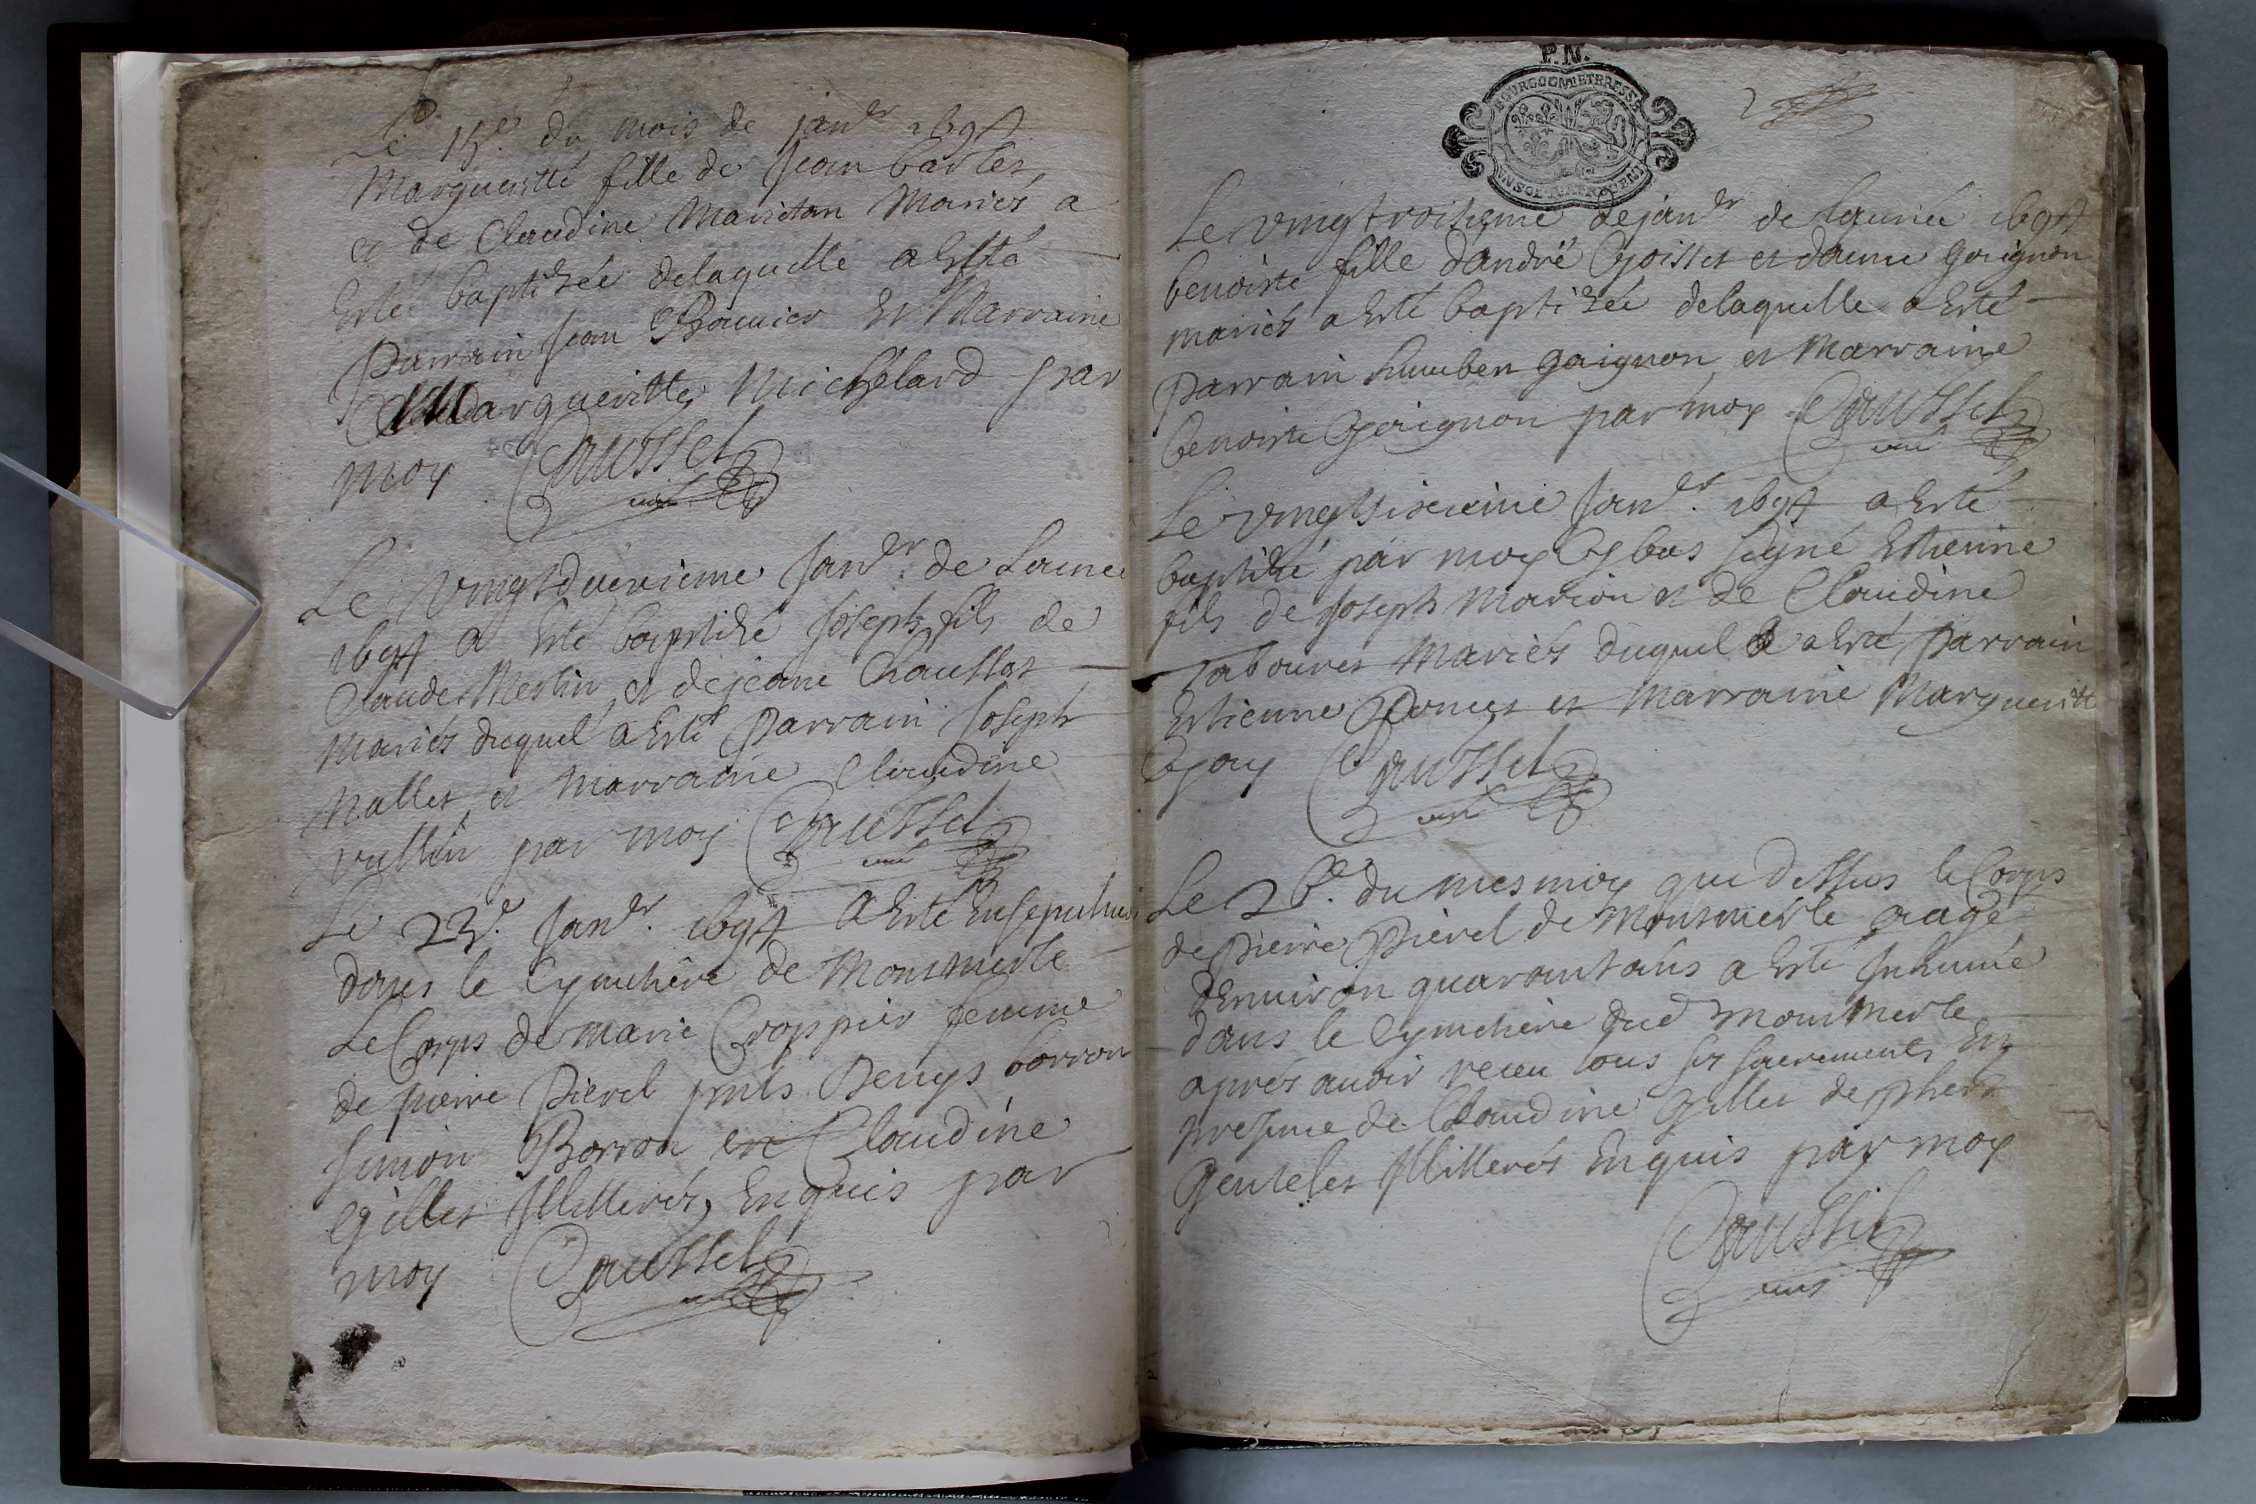 Le 15e. du mois de janer 1694
Margueritte fille de Jean barlet
et de Claudine Maritan Mariés a
esté baptisée delaquelle a esté
parrain Jean Bounier et Marraine
Margueritte Michelard par
moy Trussel
curé
Le vingtdeuxieme Janer. de Lannée
1694 a esté baptisé Joseph fils de
Claude Merlin et de jeane Chausset
Mariés duquel a esté parrain Joseph
Nallet et Marraine Claudine
vullin par moy Trussel
curé
Le 23e. Janer. 1694 a esté Ensepulturé
dans le Cymetiere de Monsmerle
Le Corps de marie Croppier femme
de pierre Pierel pnts Denys borron
Simon Borron et Claudine
gilles Illitterés Enquis par
moy Trussel
P.N.
BOURGOGNE ET BRESSE
UN SOL
2
Le vingtroisieme de janer de lannée 1694
benoiste fille d'andré Goisset et d'anne Goignon
mariés a esté baptisée delaquelle a esté
parrain humber Goignon et Marraine
benoiste Goignon par moy Trussel
curé
Le vingtsixieme Janer. 1694 a esté
baptisé par moy Cy bas signé Estienne
fils de Joseph Marion et de Claudine
Tabouret Mariés duquel a esté parrain
Estienne Poncet et Marraine Margueritte
Goy Trussel
curé
Le 26e. du mesmoy que dessus le Corps
de pierre Pierel de Monsmerle aagé
denuiron quarantans a esté Inhumé
dans le Cymetiere dud Monsmerle
aprés auoir receu tous ses sacrements En
presence de Claudine Gilles de
Illitterés Enquis par moy
Trussel
curé